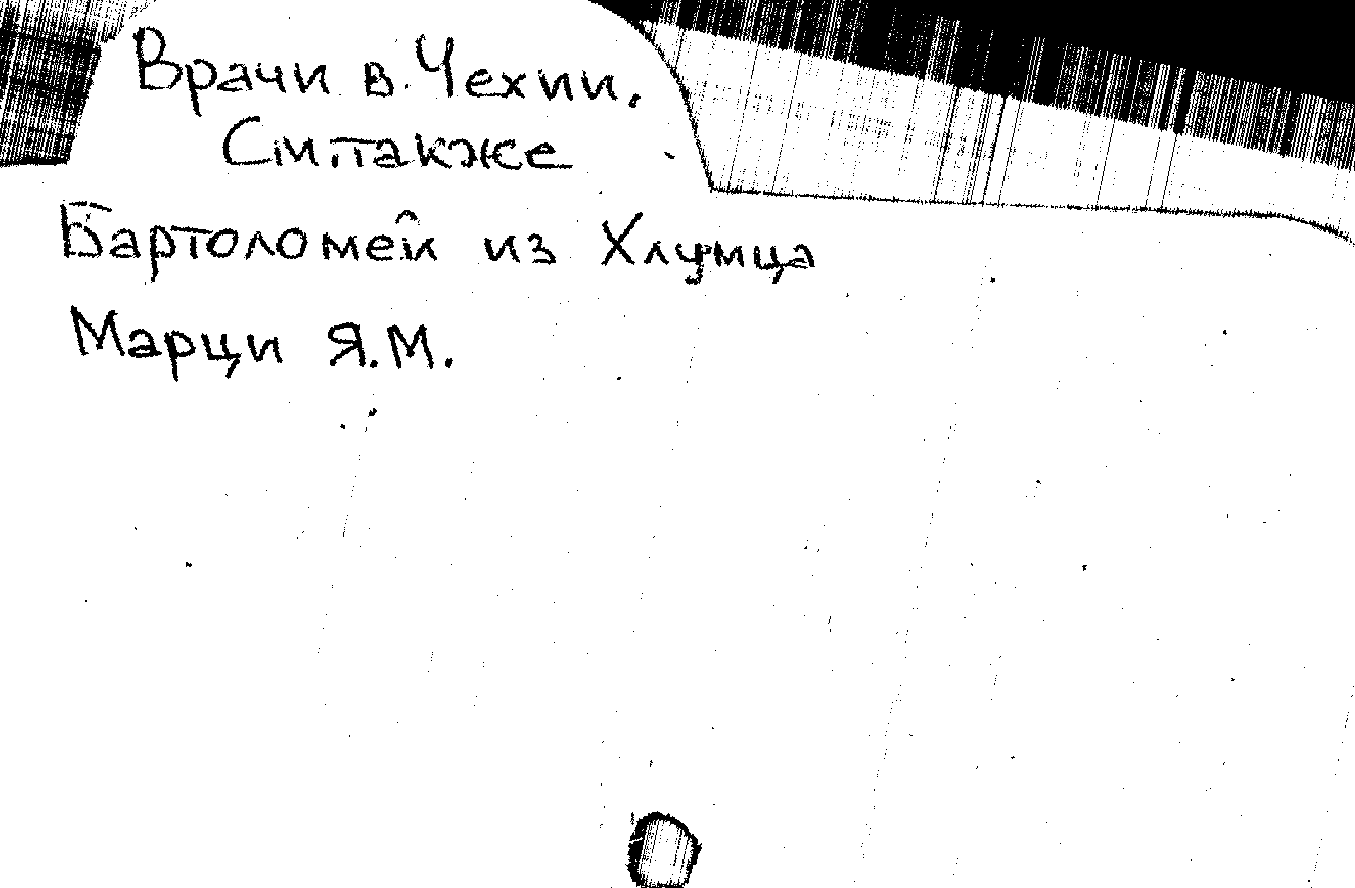 Врачи в Чехии.
См. также
Бартоломей из Хлумца
Марци Я.М.